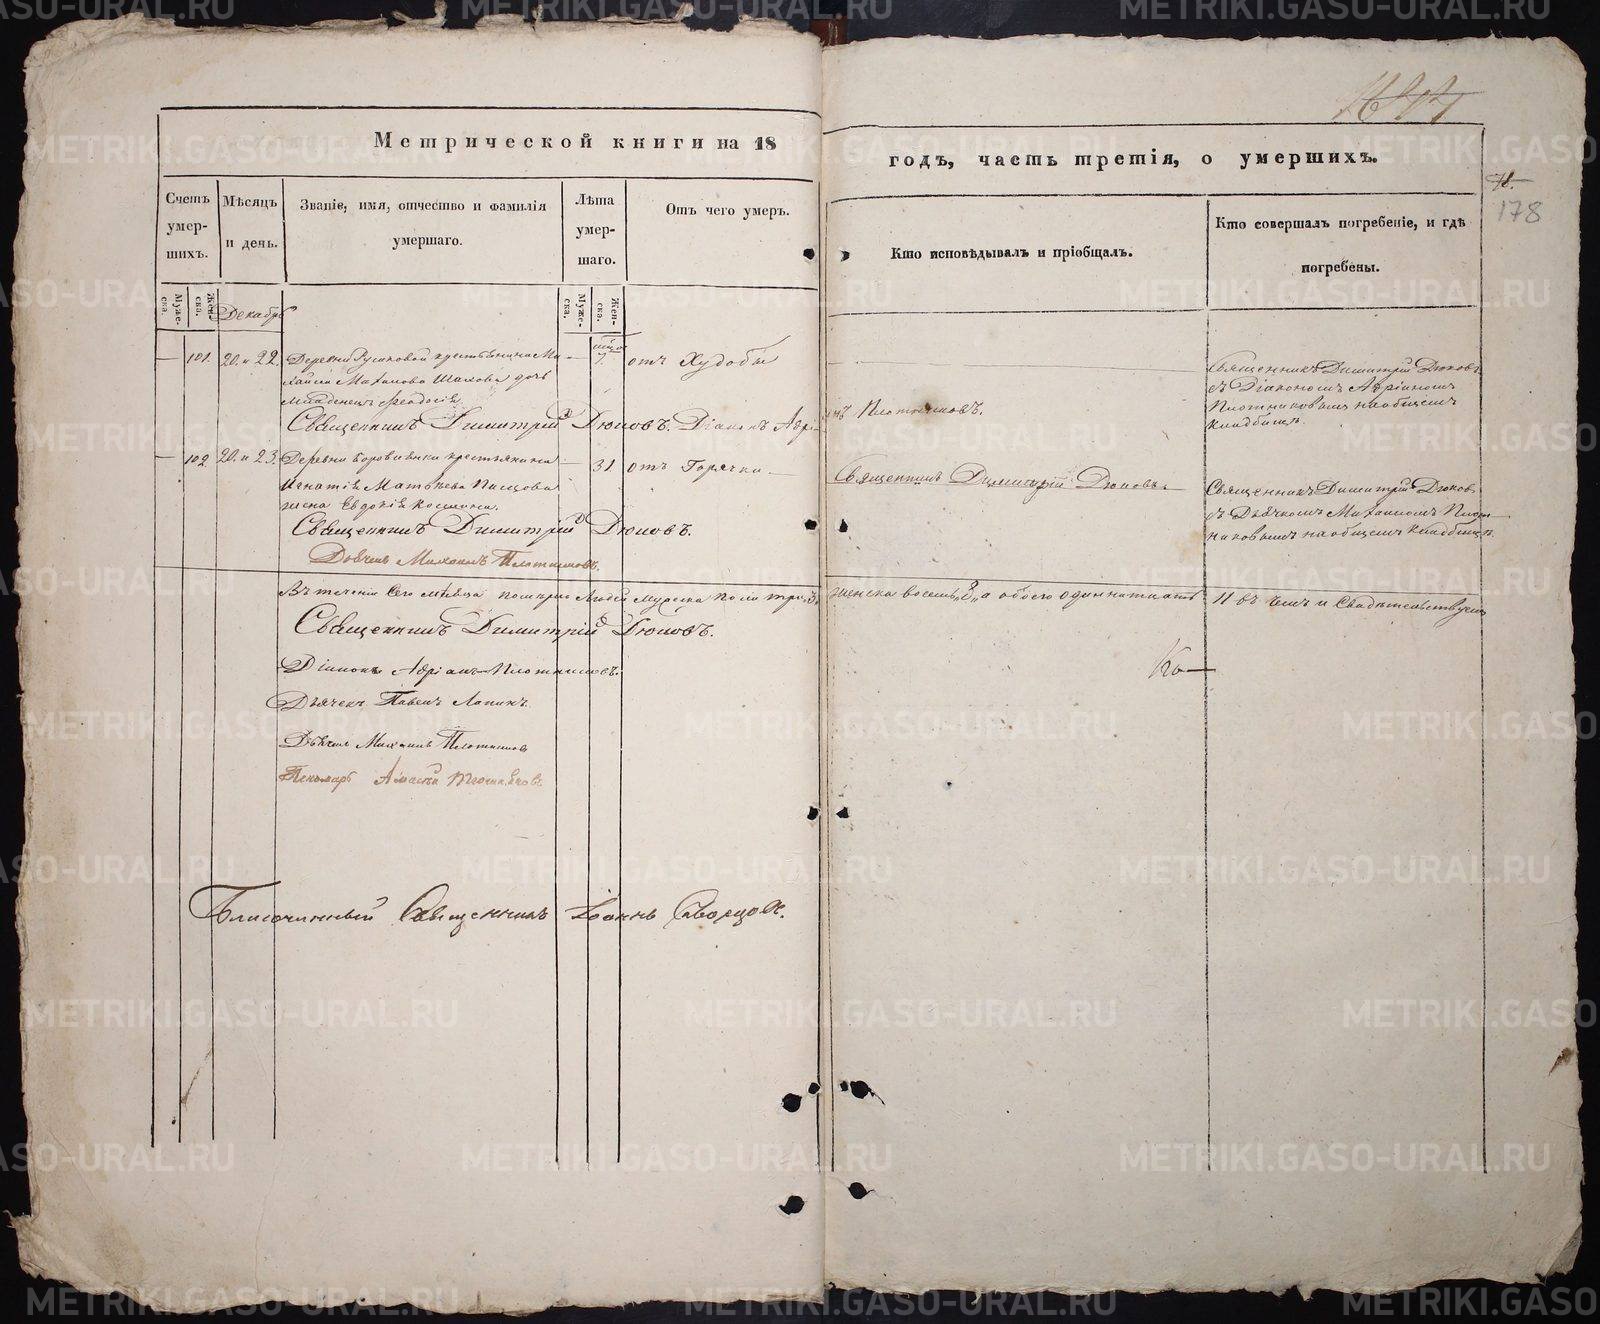 Метрической книги на 18
годъ, часть третія, о умершихъ.
178
Счетъ умер-шихъ.
Мѣсяцъ и день.
Званіе, имя, отчество и фамилія умершаго.
Лѣта умер-шаго.
Отъ чего умеръ.
Кто исповѣдывалъ и пріобщалъ.
Кто совершалъ погребеніе, и гдѣ погребены.
Муже-ска.
Жен-ска.
Декабрь
Муже-ска.
Жен-ска.
101.
20. и 22.
Деревни крестьянина Ми
хайла Шахова дочь
младенецъ Феодосія
7.
отъ Худобы
Священникъ Димитрій Дюковъ
съ Діакономъ Адріаномъ
Плотниковымъ на общемъ
кладбищѣ.
Священникъ Димитрій Дюковъ. Діаконъ Адрі-
анъ Плотниковъ.
102.
20. и 23.
Деревни крестьянина
Игнатія Матвѣева
жена Евдокія
31.
отъ Горячки
Священникъ Димитрій Дюковъ.
Священникъ Димитрій Дюковъ
съ Дьячкомъ Михаиломъ Плот
никовымъ на общемъ кладбищѣ.
Священникъ Димитрій Дюковъ.
Дьячекъ Михаилъ Плотниковъ.
Въ теченіи сего мѣсяца померло людей мужеска пола три, 3.
женска восемь, 8, а обоего одиннатцать
11 въ чемъ и Свидѣтельствуемъ
Священникъ Димитрій Дюковъ.
Діаконъ Адріанъ Плотниковъ.
Дьячекъ Павелъ Лапинъ.
Дьячекъ Михаилъ Плотниковъ
Пономарь
Благочинный Священникъ Іоаннъ Скворцовъ.
METRIKI.GASO-URAL.RU